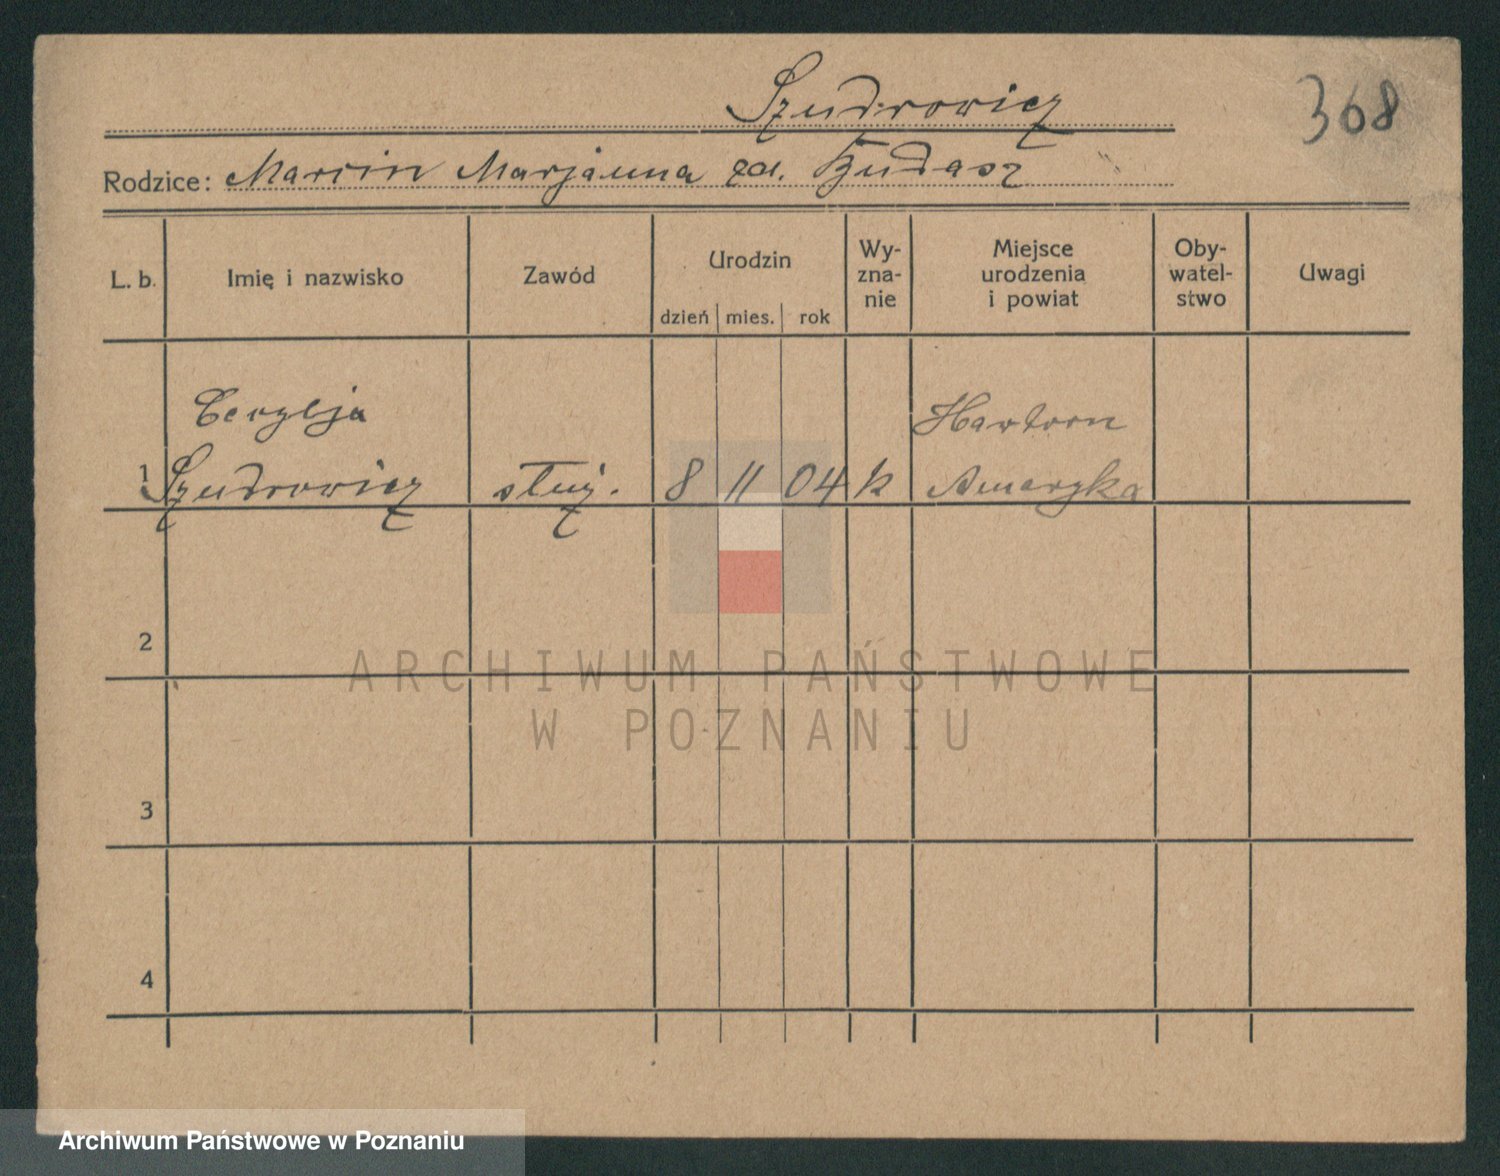 Szudrowicz
368
Rodzice: Marcin Marjanna zd.
L. b.
Imię i nazwisko
Zawód
Urodzin
dzień mies. rok
Wy-
zna-
nie
Miejsce
urodzenia
i powiat
Oby-
watel-
stwo
Uwagi
Cecylja
Hawtorn
1 Szudrowicz służ. 8 11 04 k Ameryka
2
3
4
ARCHIWUM PAŃSTWOWE
W POZNANIU
Archiwum Państwowe w Poznaniu